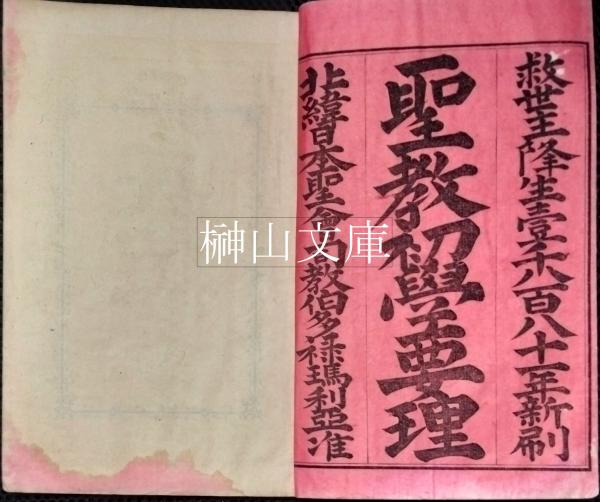 救世主降生壹千八百八十一年新刷
聖教初學要理
北緯日本聖會司教伯多祿瑪利亞准
榊山文庫